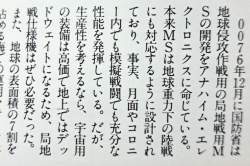 0076年12月に国防省は
地球侵攻作戦用の局地戦用M
Sの開発をアナハイム・エレ
クトロニクスに命じている。
本来MSは地球重力下の陸戦
にも対応するように設計され
ており、事実、月面やコロニ
ー内でも模擬戦闘でも充分な
性能を発揮している。だが、
生産性を考えるなら、宇宙用
の装備は高価で地上ではデッ
ドウェイトになるため、局地
戦仕様機はぜひ必要だった。
また、地球の表面積の7割を
占める海の